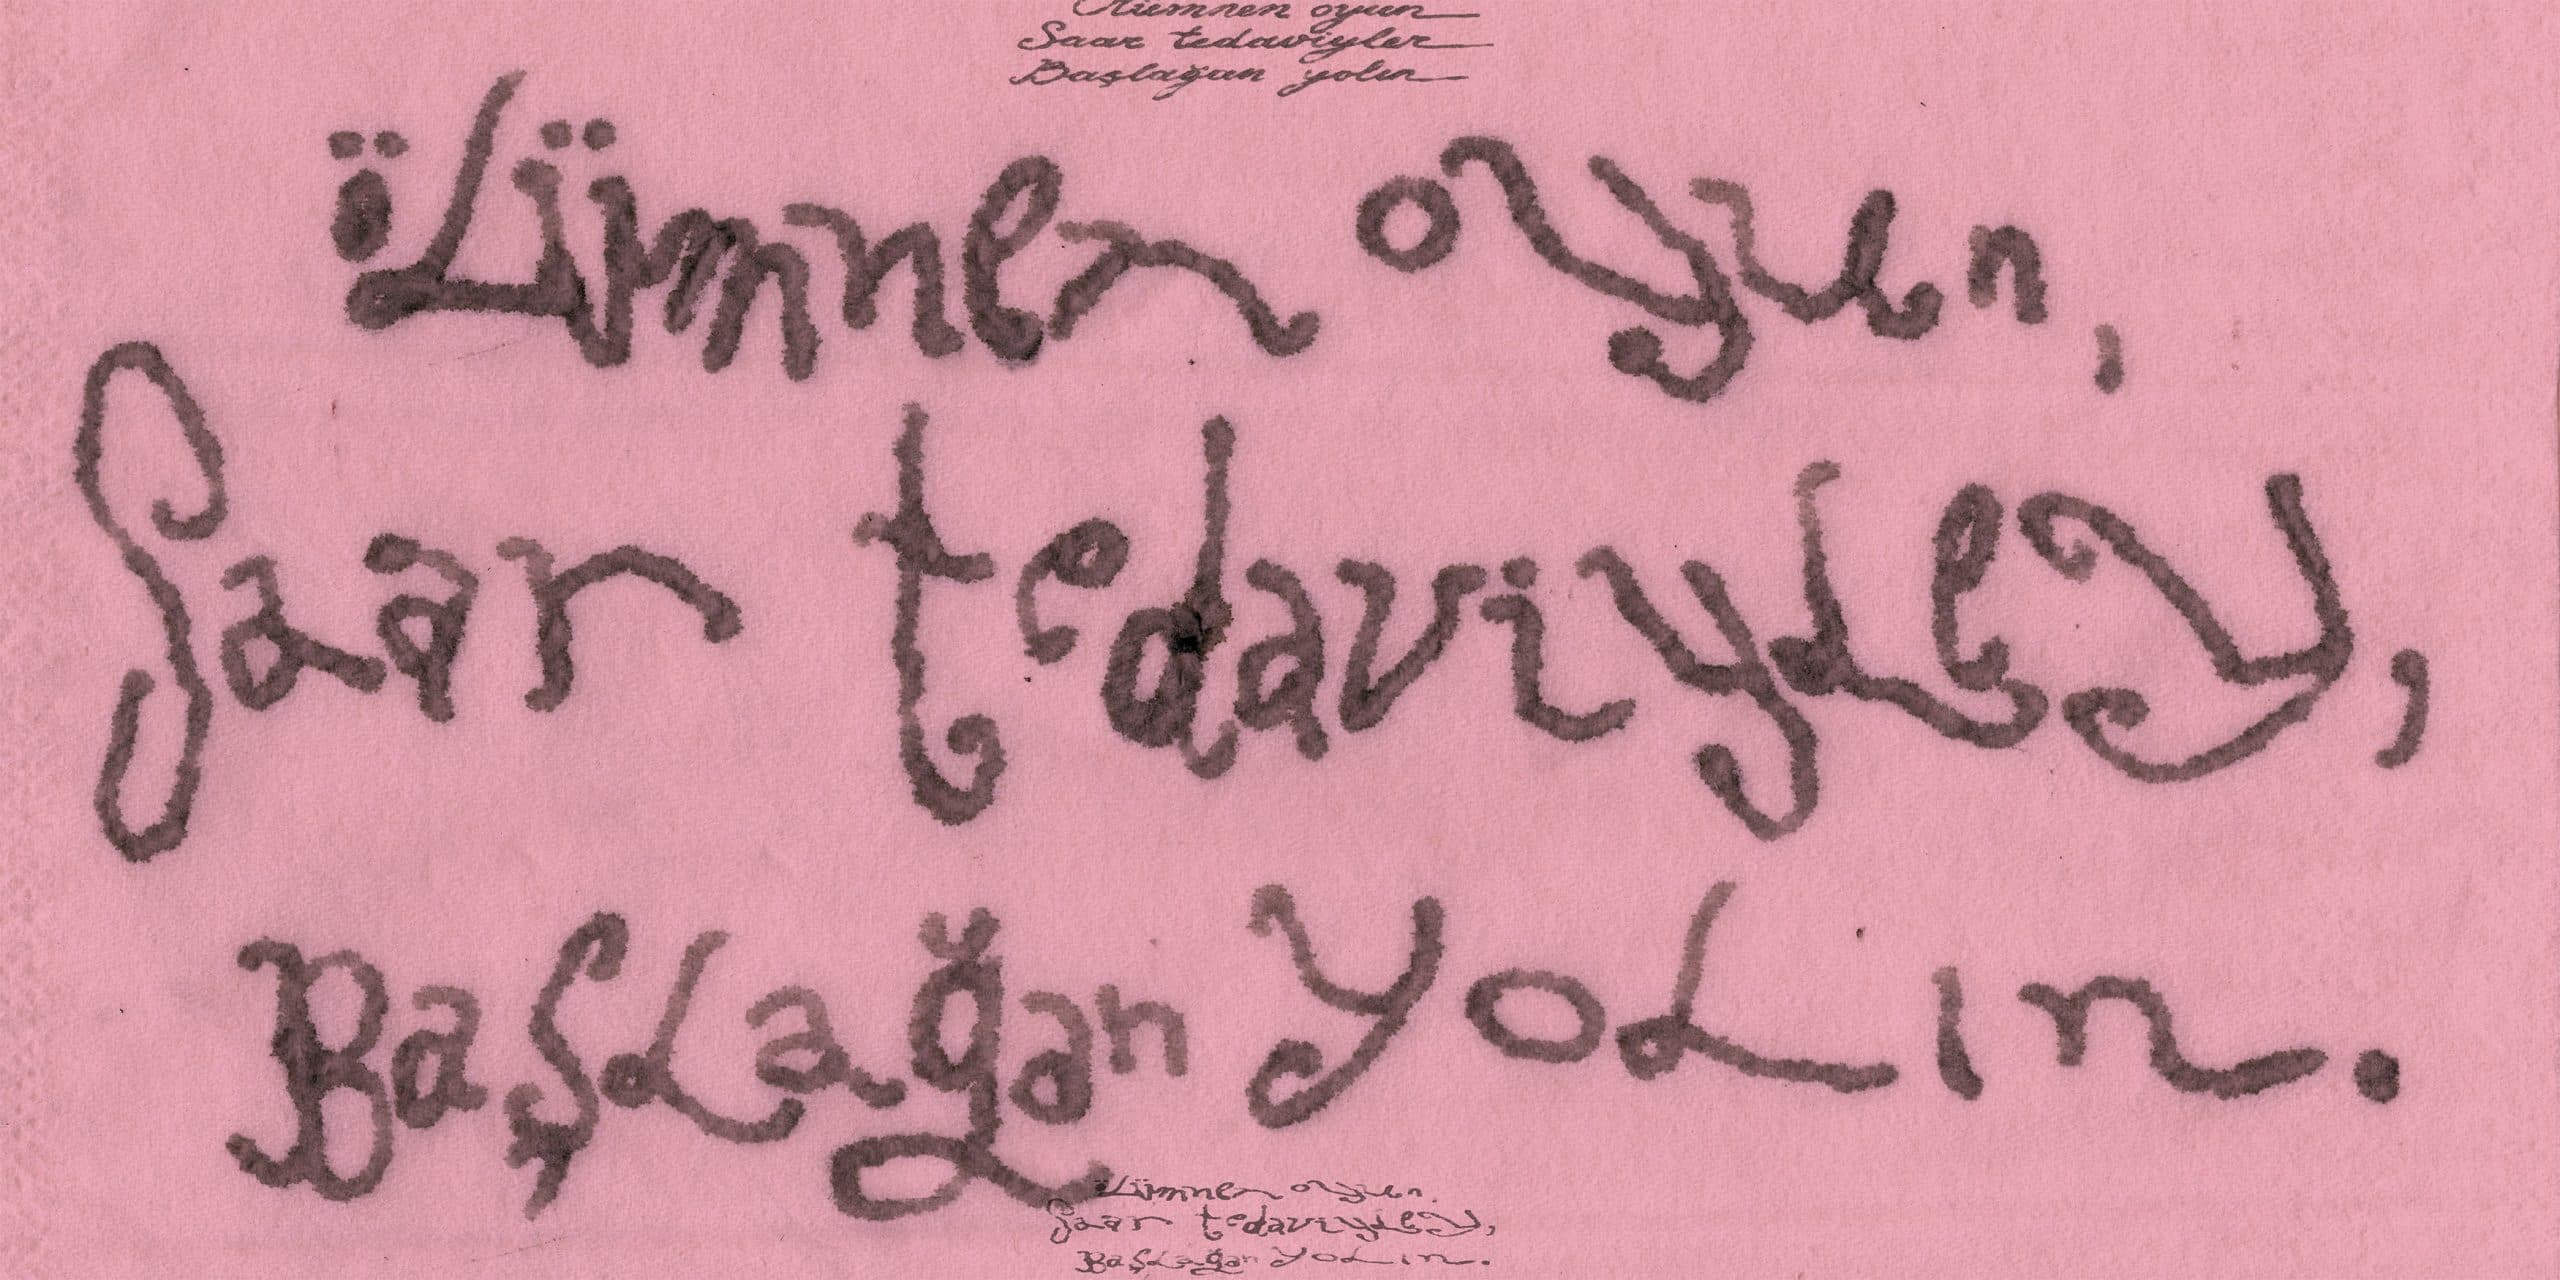 oyun
Saar tedaviyler
Başlağan yolın
öLümnen oyun,
Saar tedaviyLey,
BaşLağan yoLın.
öLümnen oyun,
Saar tedaviyLey,
BaşLağan yoLın.